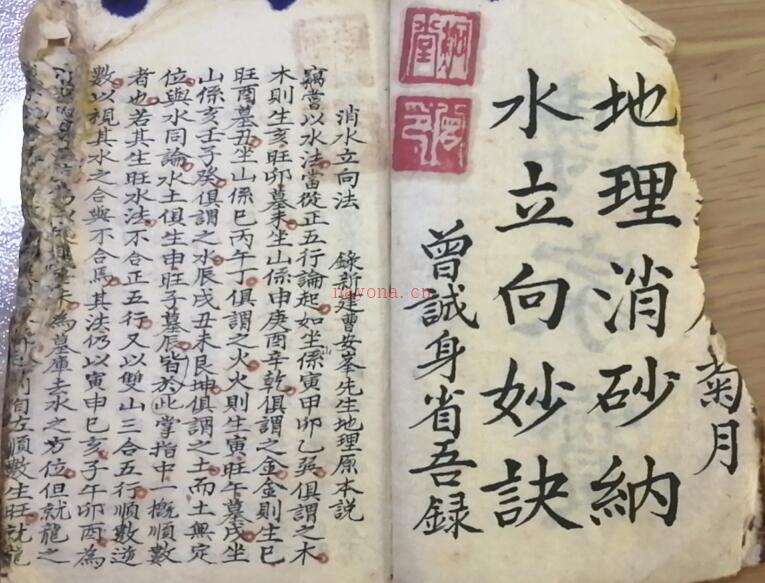 菊月
地理消砂納
水立向妙訣
曾誠身省吾錄
消水立向法 錄新建曹安峯先生地理原本說
竊嘗以水法當從正五行論起如坐山係寅甲卯乙巽俱謂之木
木則生亥旺卯墓未坐山係申庚酉辛乾俱謂之金金則生巳
旺酉墓丑坐山係巳丙午丁俱謂之火火則生寅旺午墓戌坐
山係亥壬子癸俱謂之水辰戌丑未艮坤俱謂之土而土無定
位與水同論水土俱生申旺子墓辰皆於此掌指中一概順數
者也若其生旺水法不合正五行又以雙山三合五行順數逆
數以視其水之合與不合焉其法仍以寅申巳亥子午卯酉為
未為墓庫去水之方位但就龍之
自左順數生旺就龍
nayona.cn